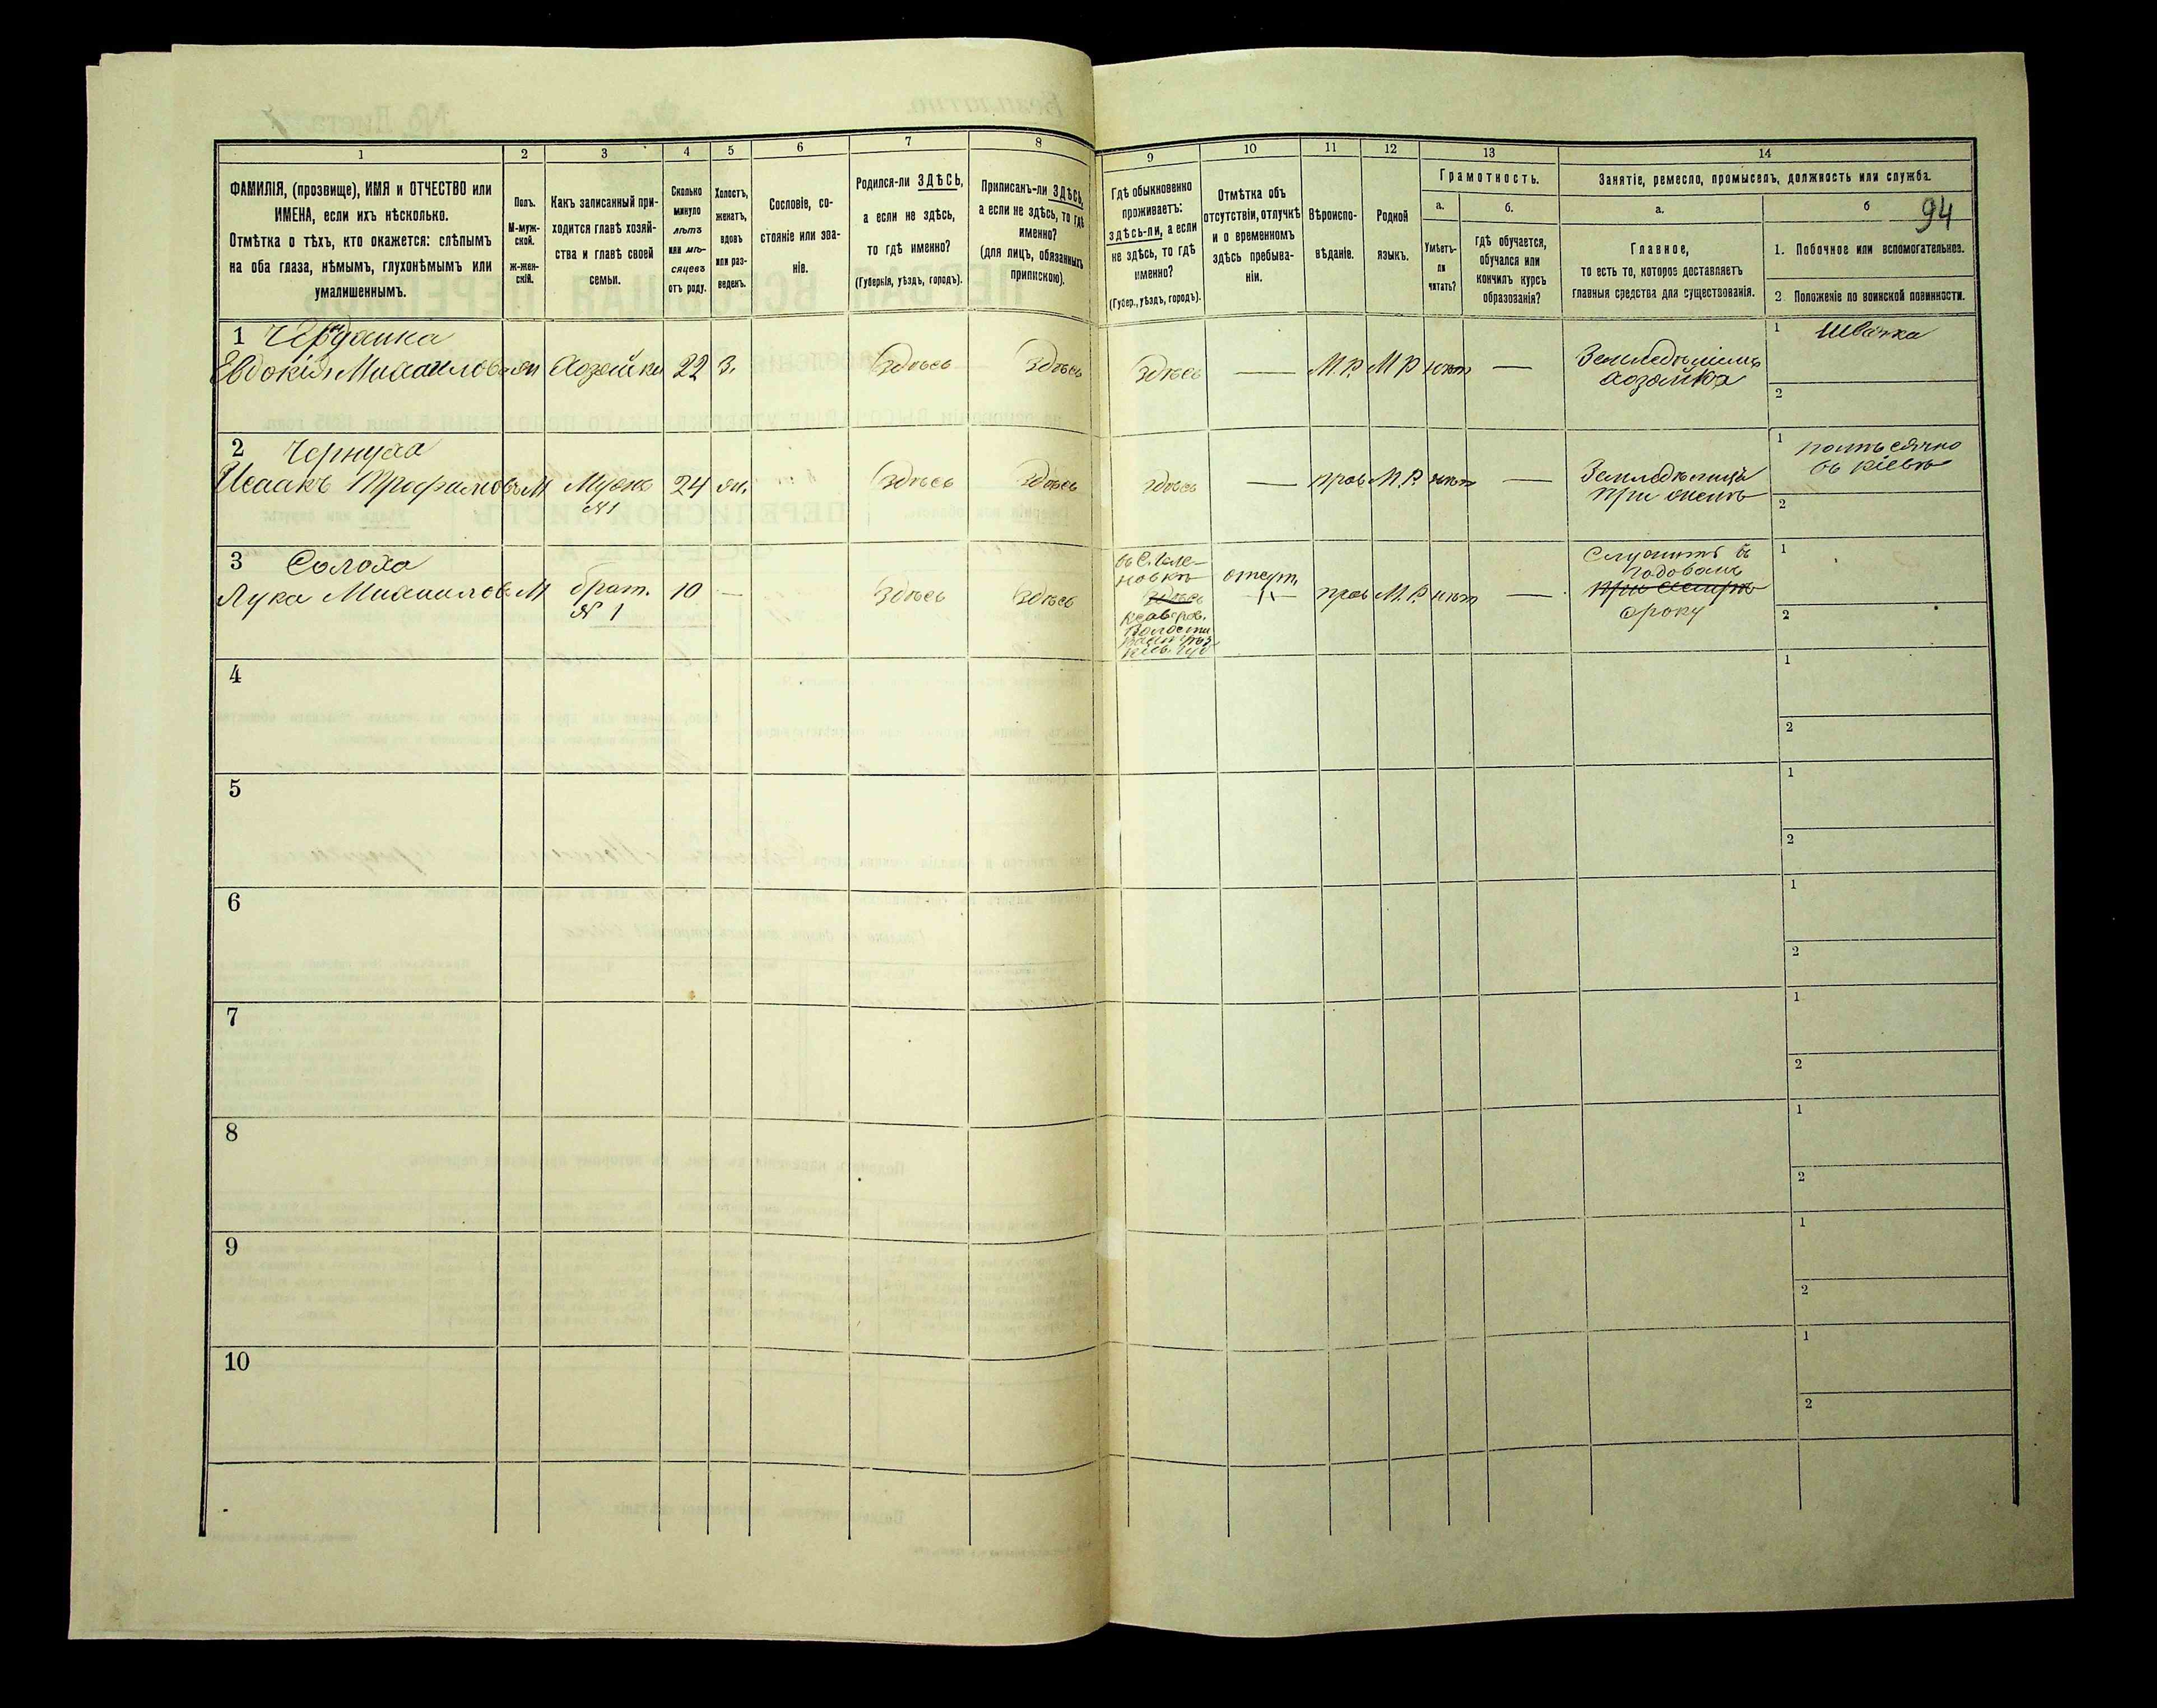 1 2 3 4 5 6 7 8
ФАМИЛІЯ, (прозвище), ИМЯ и ОТЧЕСТВО или
ИМЕНА, если ихъ нѣсколько.
Отмѣтка о тѣхъ, кто окажется: слѣпымъ
на оба глаза, нѣмымъ, глухонѣмымъ или
умалишеннымъ.
Полъ.
М-муж-
ской.
ж-жен-
скій.
Какъ записанный при-
ходится главѣ хозяй-
ства и главѣ своей
семьи.
Сколько
минуло
лѣтъ
или мѣ-
сяцевъ
отъ роду.
Холостъ,
женатъ,
вдовъ
или раз-
веденъ.
Сословіе, со-
стояніе или зва-
ніе.
Родился-ли ЗДѢСЬ,
а если не здѣсь,
то гдѣ именно?
(Губернія, уѣздъ, городъ).
Приписанъ-ли ЗДѢСЬ,
а если не здѣсь, то гдѣ
именно?
(для лицъ, обязанныхъ
припискою).
9 10 11 12 13 14
Гдѣ обыкновенно
проживаетъ:
здѣсь-ли, а если
не здѣсь, то гдѣ
именно?
(Губер., уѣздъ, городъ).
Отмѣтка объ
отсутствіи, отлучкѣ
и о временномъ
здѣсь пребыва-
ніи.
Вѣроиспо-
вѣданіе.
Родной
языкъ.
Грамотность.
а. б.
Умѣетъ-
ли
читать?
гдѣ обучается,
обучался или
кончилъ курсъ
образованія?
Занятіе, ремесло, промыселъ, должность или служба.
а. б
94
Главное,
то есть то, которое доставляетъ
главныя средства для существованія.
1. Побочное или вспомогательное.
2 Положеніе по воинской повинности.
1
Евдокія Михаилов. Хозяйка 22 з. здѣсь здѣсь здѣсь — М.Р. М Р нѣт —
хозяйка
1 Швачка
2
2 Чернуха
Исаакъ Трофимовъ М Мужъ 24 здѣсь здѣсь здѣсь — прав М.Р. нѣт —
№1
при женѣ
1
въ Кіевѣ
2
3 Солоха
Лука Михаилов М брат. 10 — здѣсь здѣсь
№ 1
здѣсь
отсут. прав М.Р. нѣт —
Служитъ в
годовомъ
сроку
1
2
4 1
2
5 1
2
6 1
2
7 1
2
8 1
2
9 1
2
10 1
2